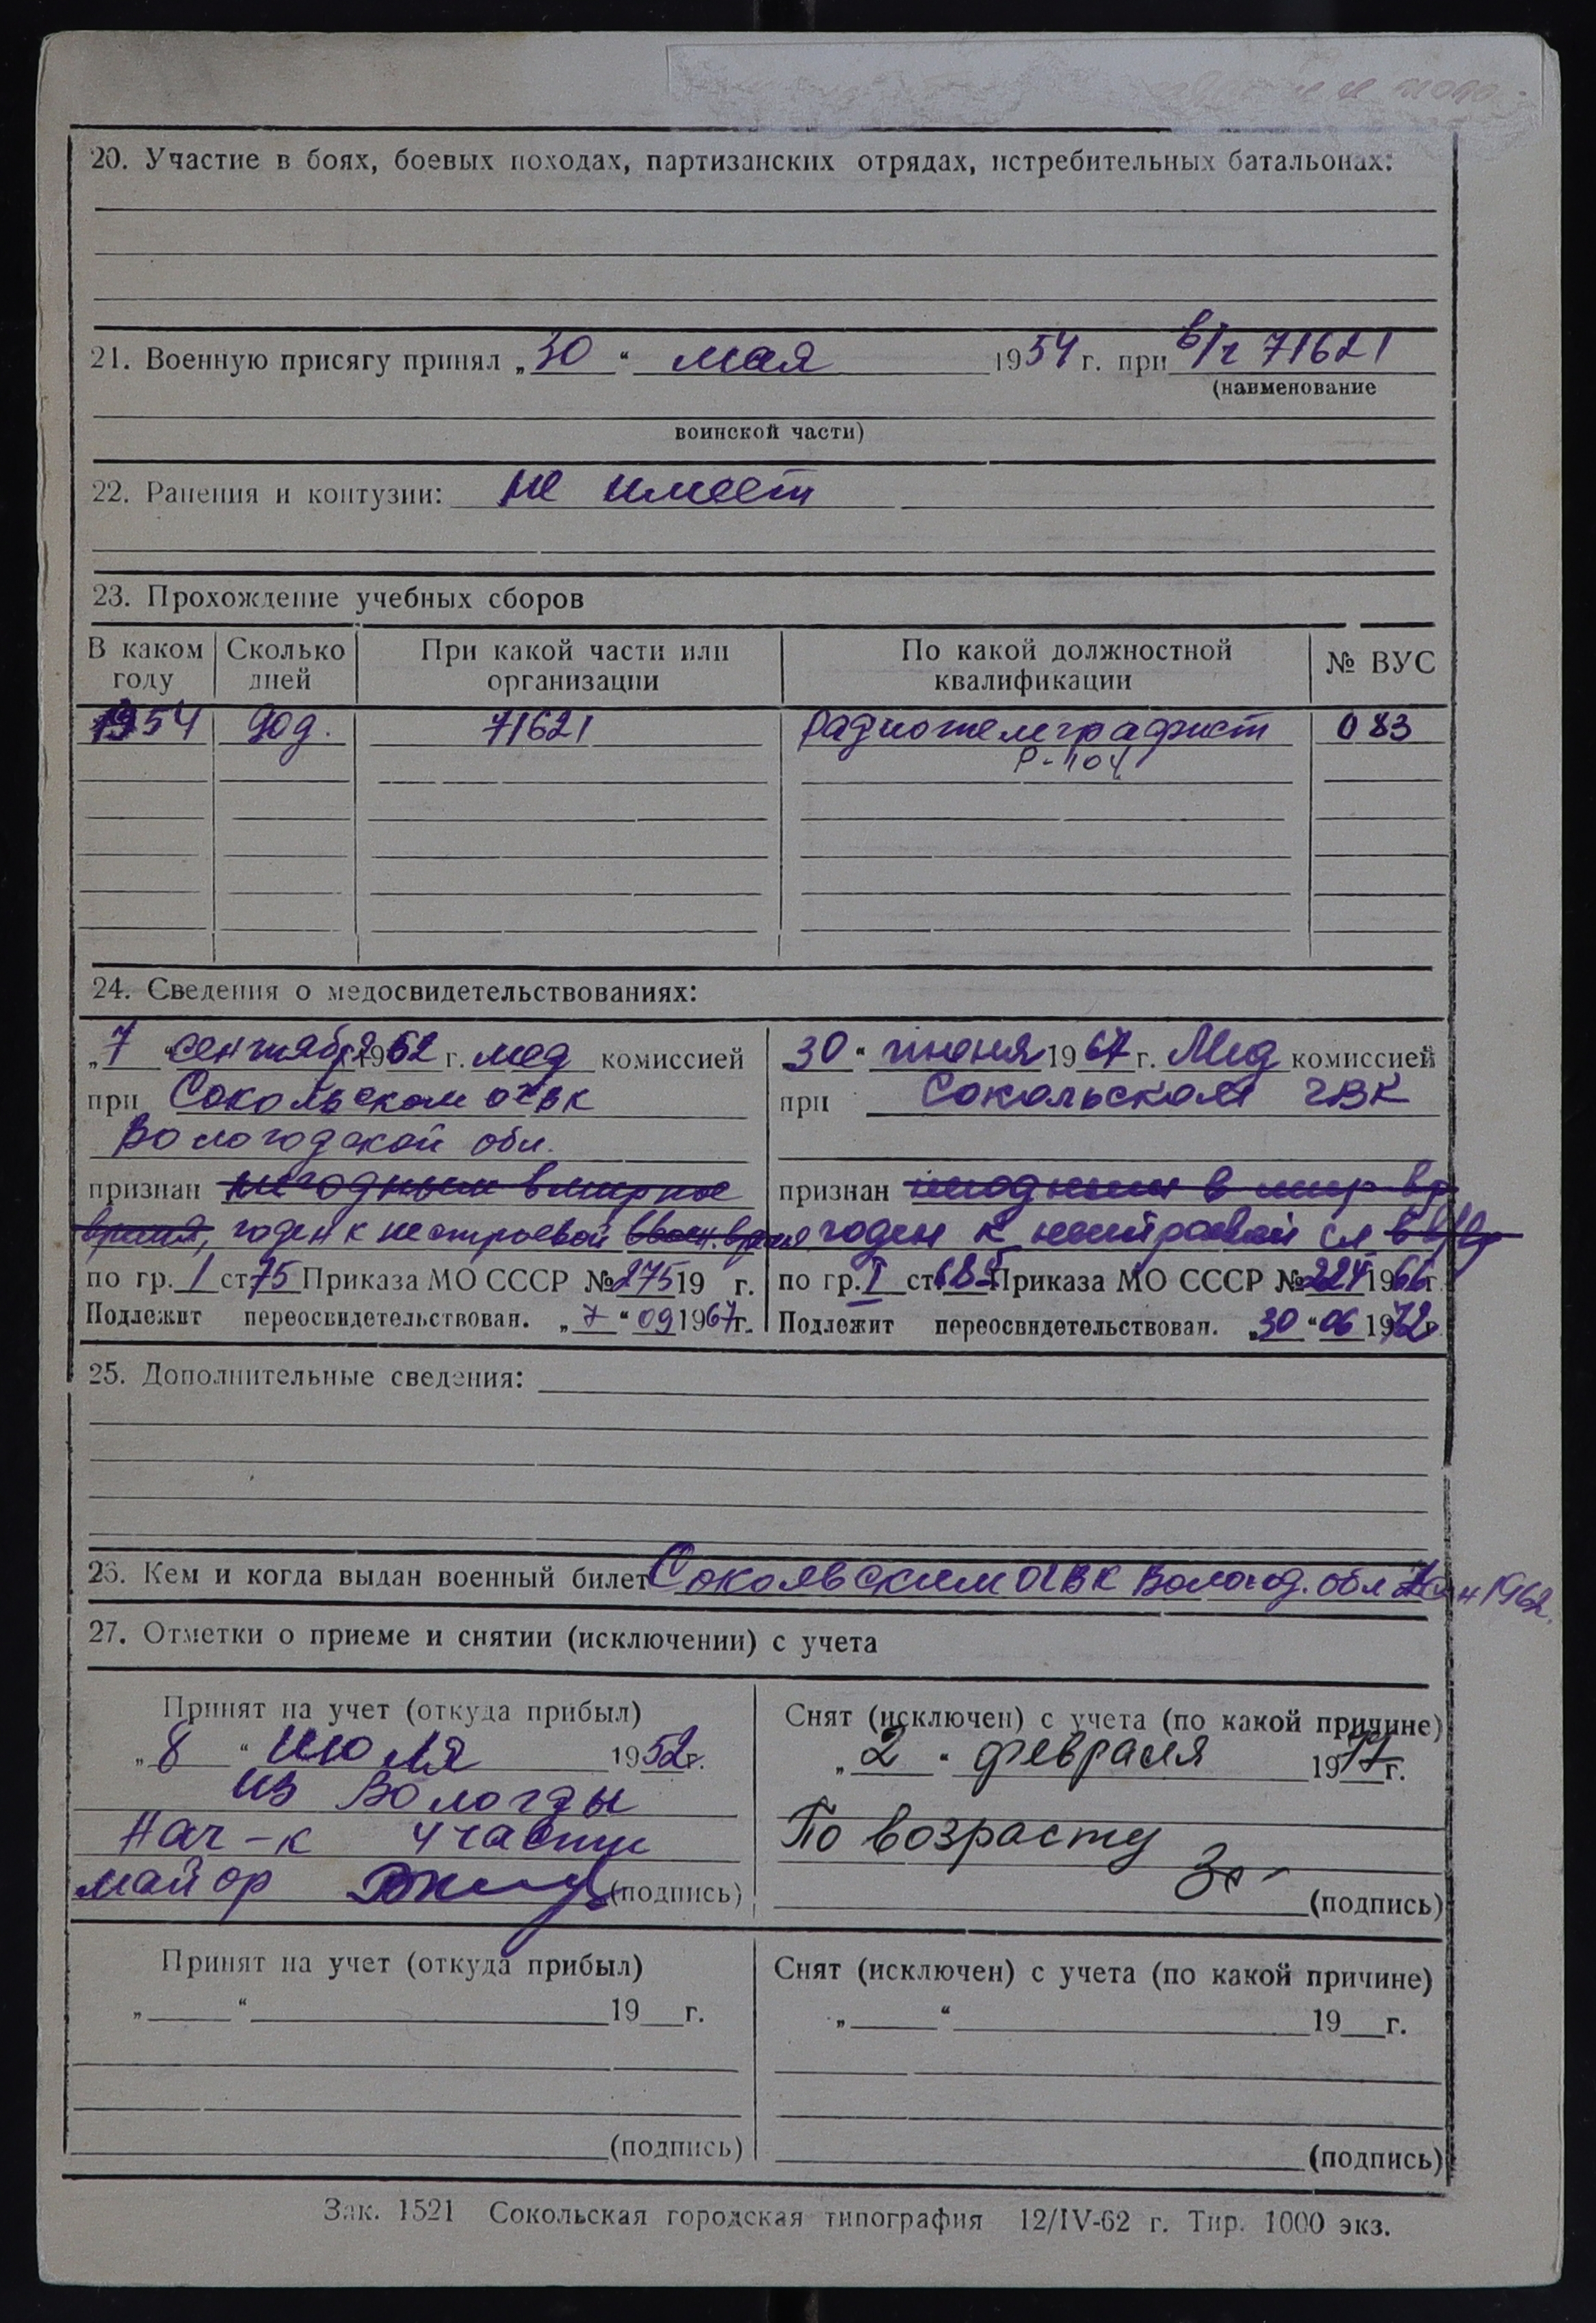 20. Участие в боях, боевых походах, партизанских отрядах, истребительных батальонах:
21. Военную присягу принял „30“ мая 1954 г. при в/ч 71621
(наименование
воинской части)
22. Ранения и контузии: не имеет
23. Прохождение учебных сборов
В каком году Сколько дней При какой части или организации По какой должностной квалификации № ВУС
1954 90д. 71621 радиотелеграфист 083
Р-104
24. Сведения о медосвидетельствованиях:
„7“ сентября 1962 г. мед комиссией
при Сокольском ОГВК
Вологодской обл.
признан негодным в мирное
время, годен к нестроевой в воен. время
по гр. I ст 75 Приказа МО СССР № 275 19 г.
Подлежит переосвидетельствован. „7“ 09 1967г.
„30“ июня 1967 г. Мед комиссией
при Сокольском ГВК
признан негодным в мир вр
годен к нестроевой сл в в/вр
по гр. I ст. Приказа МО СССР № 224 1966г.
Подлежит переосвидетельствован. „30“ 06 1972г.
25. Дополнительные сведения:
26. Кем и когда выдан военный билет Сокольским ОГВК Волог. обл 1962.
27. Отметки о приеме и снятии (исключении) с учета
Принят на учет (откуда прибыл)
„8“ июля 1952г.
из Вологды
Нач-к 4 части
майор (подпись)
Снят (исключен) с учета (по какой причине)
„2“ февраля 19 г.
По возрасту
(подпись)
Принят на учет (откуда прибыл)
„ “ 19 г.
(подпись)
Снят (исключен) с учета (по какой причине)
„ “ 19 г.
(подпись)
Зак. 1521 Сокольская городская типография 12/IV-62 г. Тир. 1000 экз.